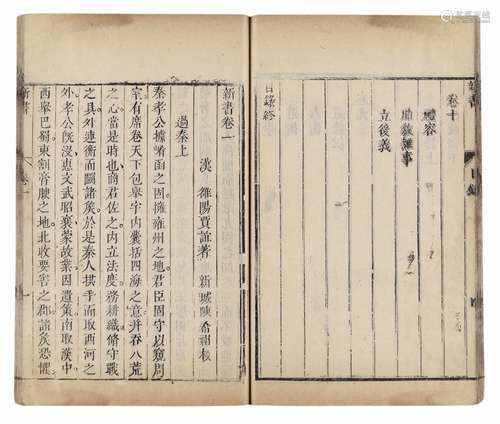 新書
目錄
卷十
禮容
胎教雜事
立後義
目錄終
新書卷一
漢 雒陽賈誼著 新城陳希祖校
過秦上
秦孝公據崤函之固擁雍州之地君臣固守以窺周
室有席卷天下包舉宇內囊括四海之意并吞八荒
之心當是時也商君佐之內立法度務耕織脩守戰
之具外連衡而鬬諸矦於是秦人拱手而取西河之
外孝公旣沒惠文武昭襄蒙故業因遺策南取漢中
西舉巴蜀東割膏腴之地北收要害之郡諸矦恐懼
新書
卷一
一